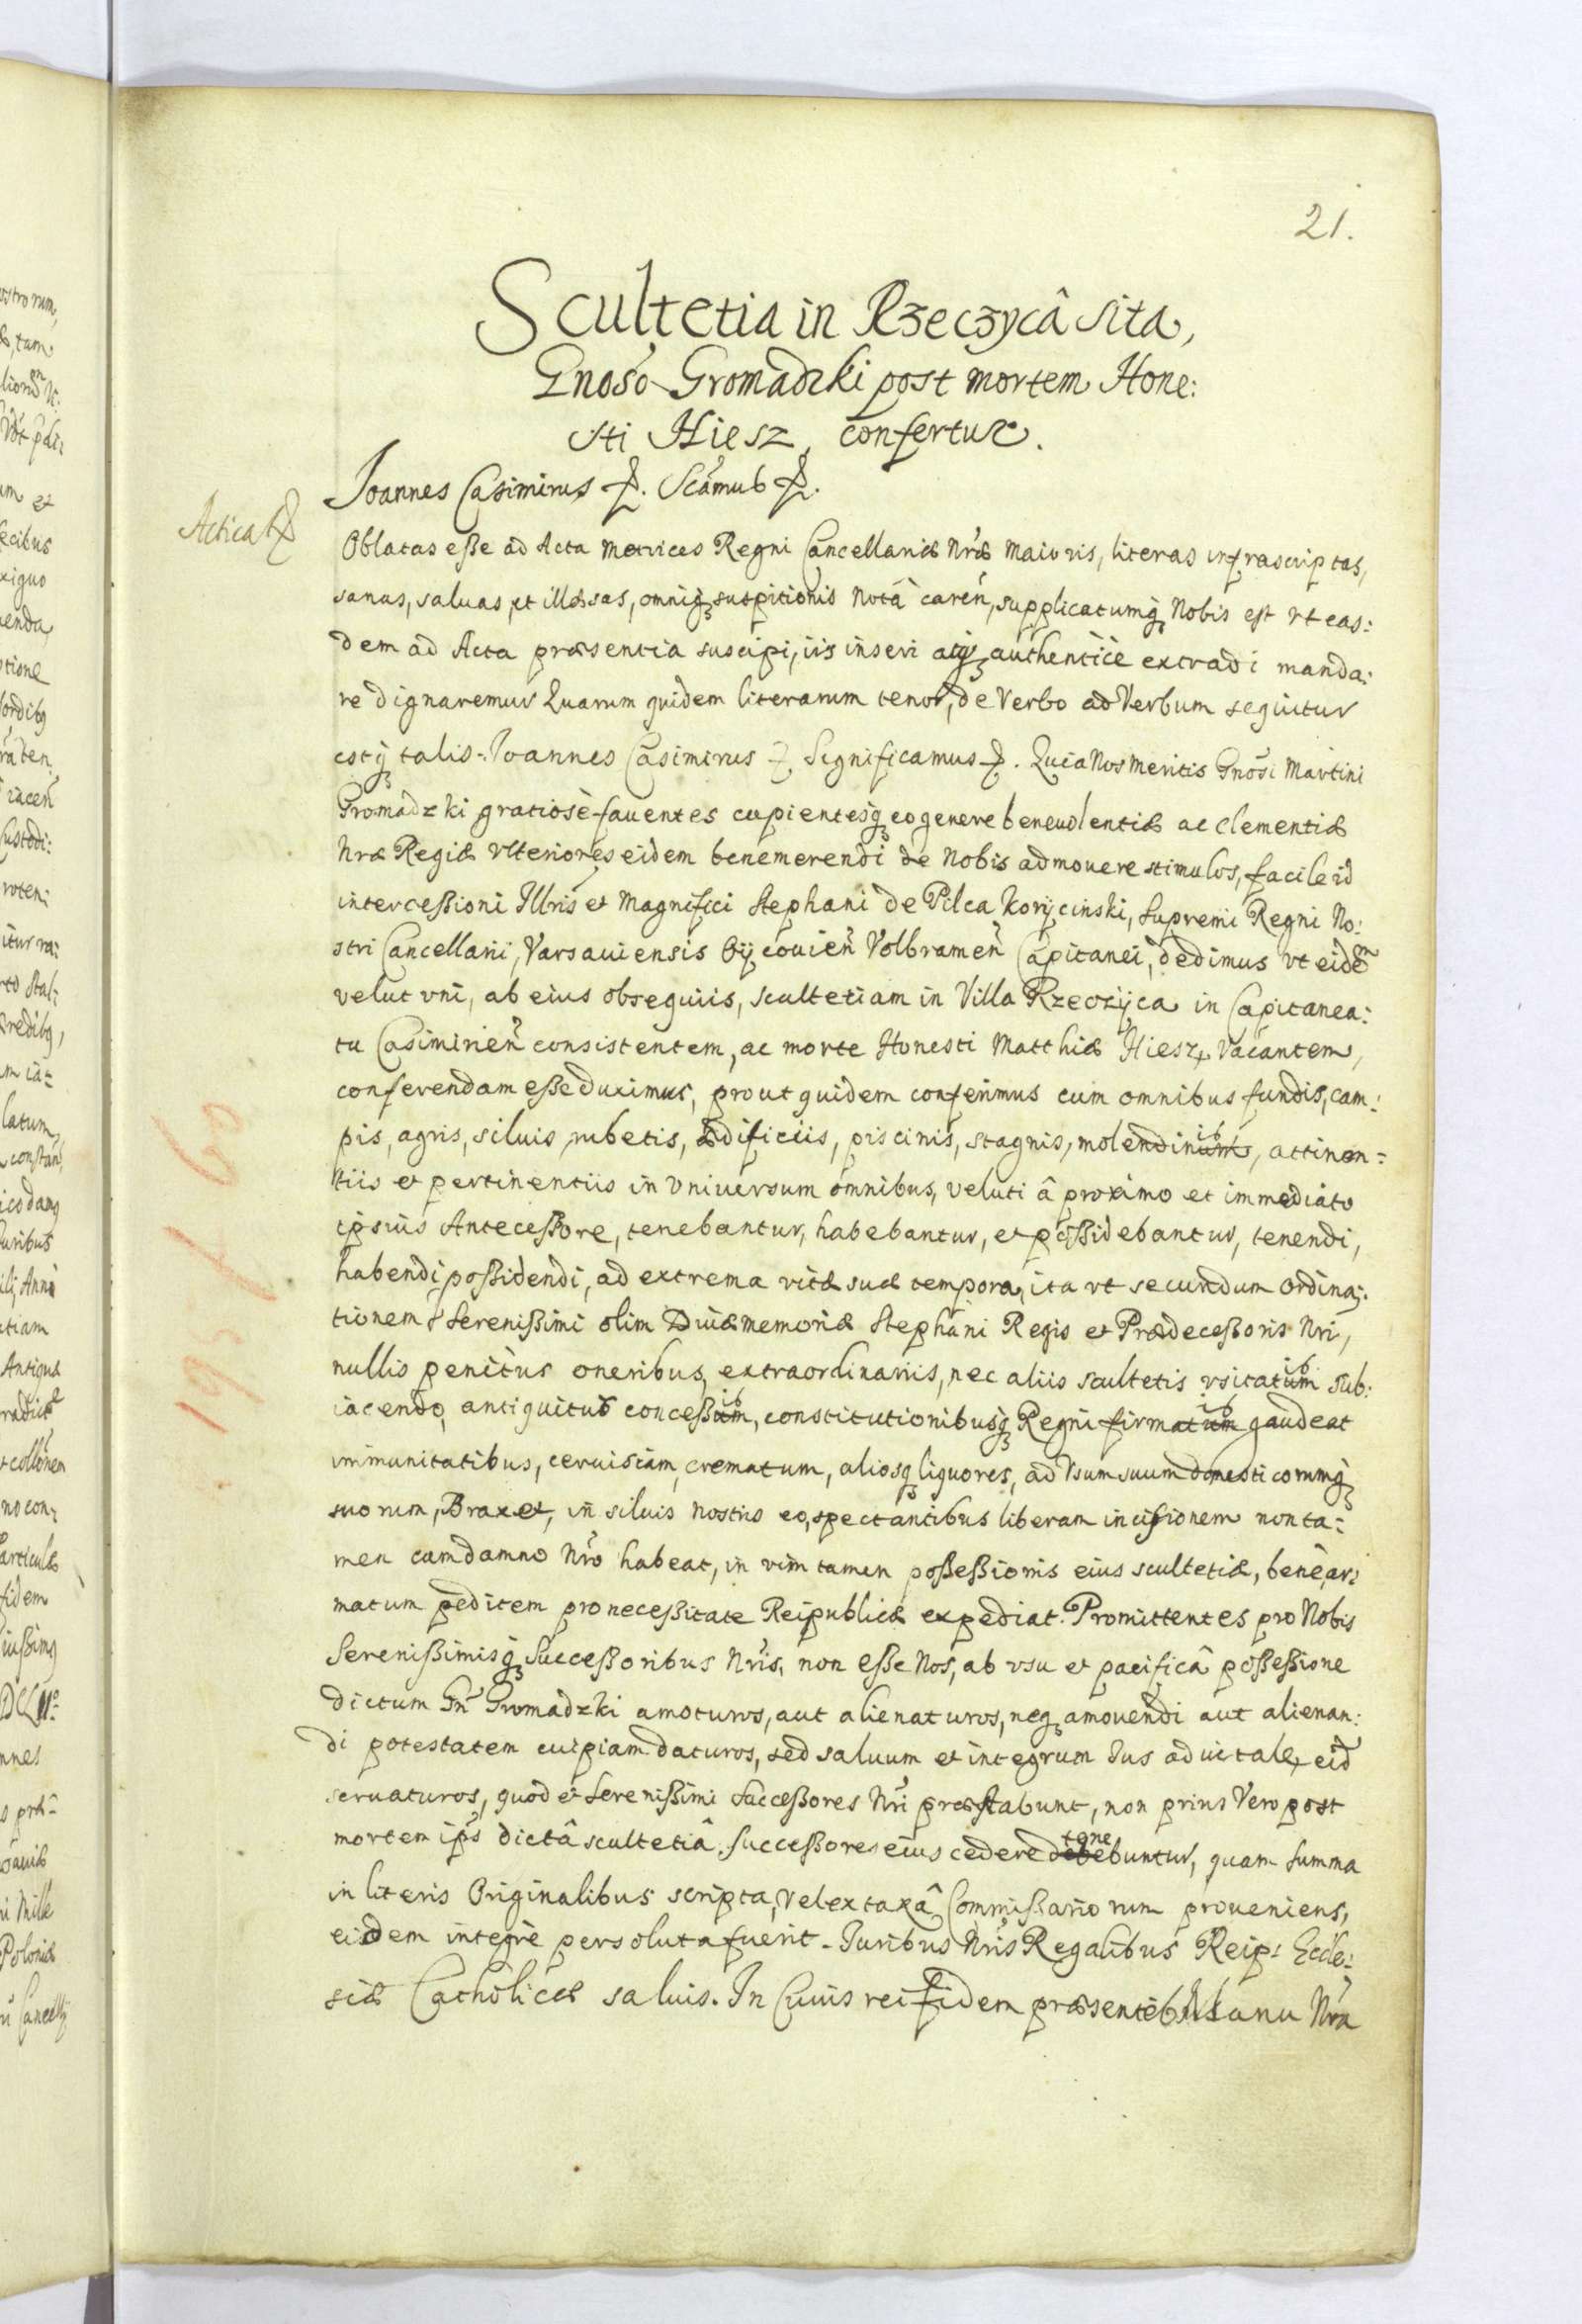 21.
Scultetia in Rzeczycâ sita,
Gnoso Gromadzki post mortem Hone:
sti Hiesz, confertur.
Joannes Casimirus &. Scamus &.
Acticat &
Oblatas eße ad Acta Metrices Regni Cancellariæ Nræ Maioris, literas infrascriptas,
sanas, saluas, et illæsas, omniq suspitionis notâ caren, supplicatumq Nobis est vt eas:
dem ad Acta præsentia suscipi, iis inseri atq authentice extradi manda:
re dignaremur Quarum quidem literarum tenor, de Verbo ad Verbum sequitur
estq talis. Joannes Casimirus & Significamus &. Quia Nos meritis Gnosi Martini
Gromadzki gratiosè fauentes cupientesq eo genere beneuolentiæ ac clementiæ
Nræ Regiæ vlteriores eidem benemerendi de Nobis admouere stimulos, facile id
intercessioni Illris et Magnifici Stephani de Pilca Korycinski, Supremi Regni No:
stri Cancellarii, Varsauiensis Oycouien Volbramen Capitanei, dedimus vt eidem
velut vni, ab eius obsequiis, scultetiam in Villa Rzeczyca in Capitanea:
tu Casimirien consistentem, ac morte Honesti Matthiæ Hiesz, Vacantem,
conferendam eße duximus, prout quidem conferimus cum omnibus fundis, cam:
pis, agris, siluis, rubetis, ædificiis, piscinis, stagnis, molendinis, attinen:
tiis et pertinentiis in vniuersum omnibus, veluti â proximo et immediato
ipsius Antecessore, tenebantur, habebantur, et possidebantur, tenendi,
habendi possidendi, ad extrema vitæ suæ tempora, ita vt secundum ordina:
tionem Serenißimi olim Diuæ memoriæ Stephani Regis et Prædeceßoris Nri,
nullis penitus oneribus, extraordinariis, nec aliis scultetis vsitatis sub:
iacendo, antiquitus concessis, constitutionibusq Regni firmatis gaudeat
immunitatibus, ceruisiam, crematum, aliosq liquores, ad Vsum suum domesticorumq
suorum, Braxet, in siluis nostris eo, spectantibus liberam incisionem non ta:
men cum damno Nro habeat, in vim tamen poßeßionis eius scultetiæ, benè ar:
matum peditem pro neceßitate Reipublicæ expediat. Promittentes pro Nobis
Serenißimisq Succeßoribus Nris, non eße Nos, ab vsu et pacificâ poßeßione
dictum Gn Gromadzki amoturos, aut alienaturos, neq amouendi aut alienan:
di potestatem cuipiam daturos, sed saluum et integrum Ius aduitale eid
seruaturos, quod et Serenißimi Succeßores Nri præstabunt, non prius Vero post
mortem ips dictâ scultetiâ Succeßores eius cedere tenebuntur, quam summa
in literis Originalibus scripta, Vel ex taxâ Commißariorum proueniens,
eidem integrè persoluta fuerit. Iuribus Nris Regalibus Reip: Eccle:
siæ Catholicæ saluis. In Cuius rei fidem præsentes Manu Nra